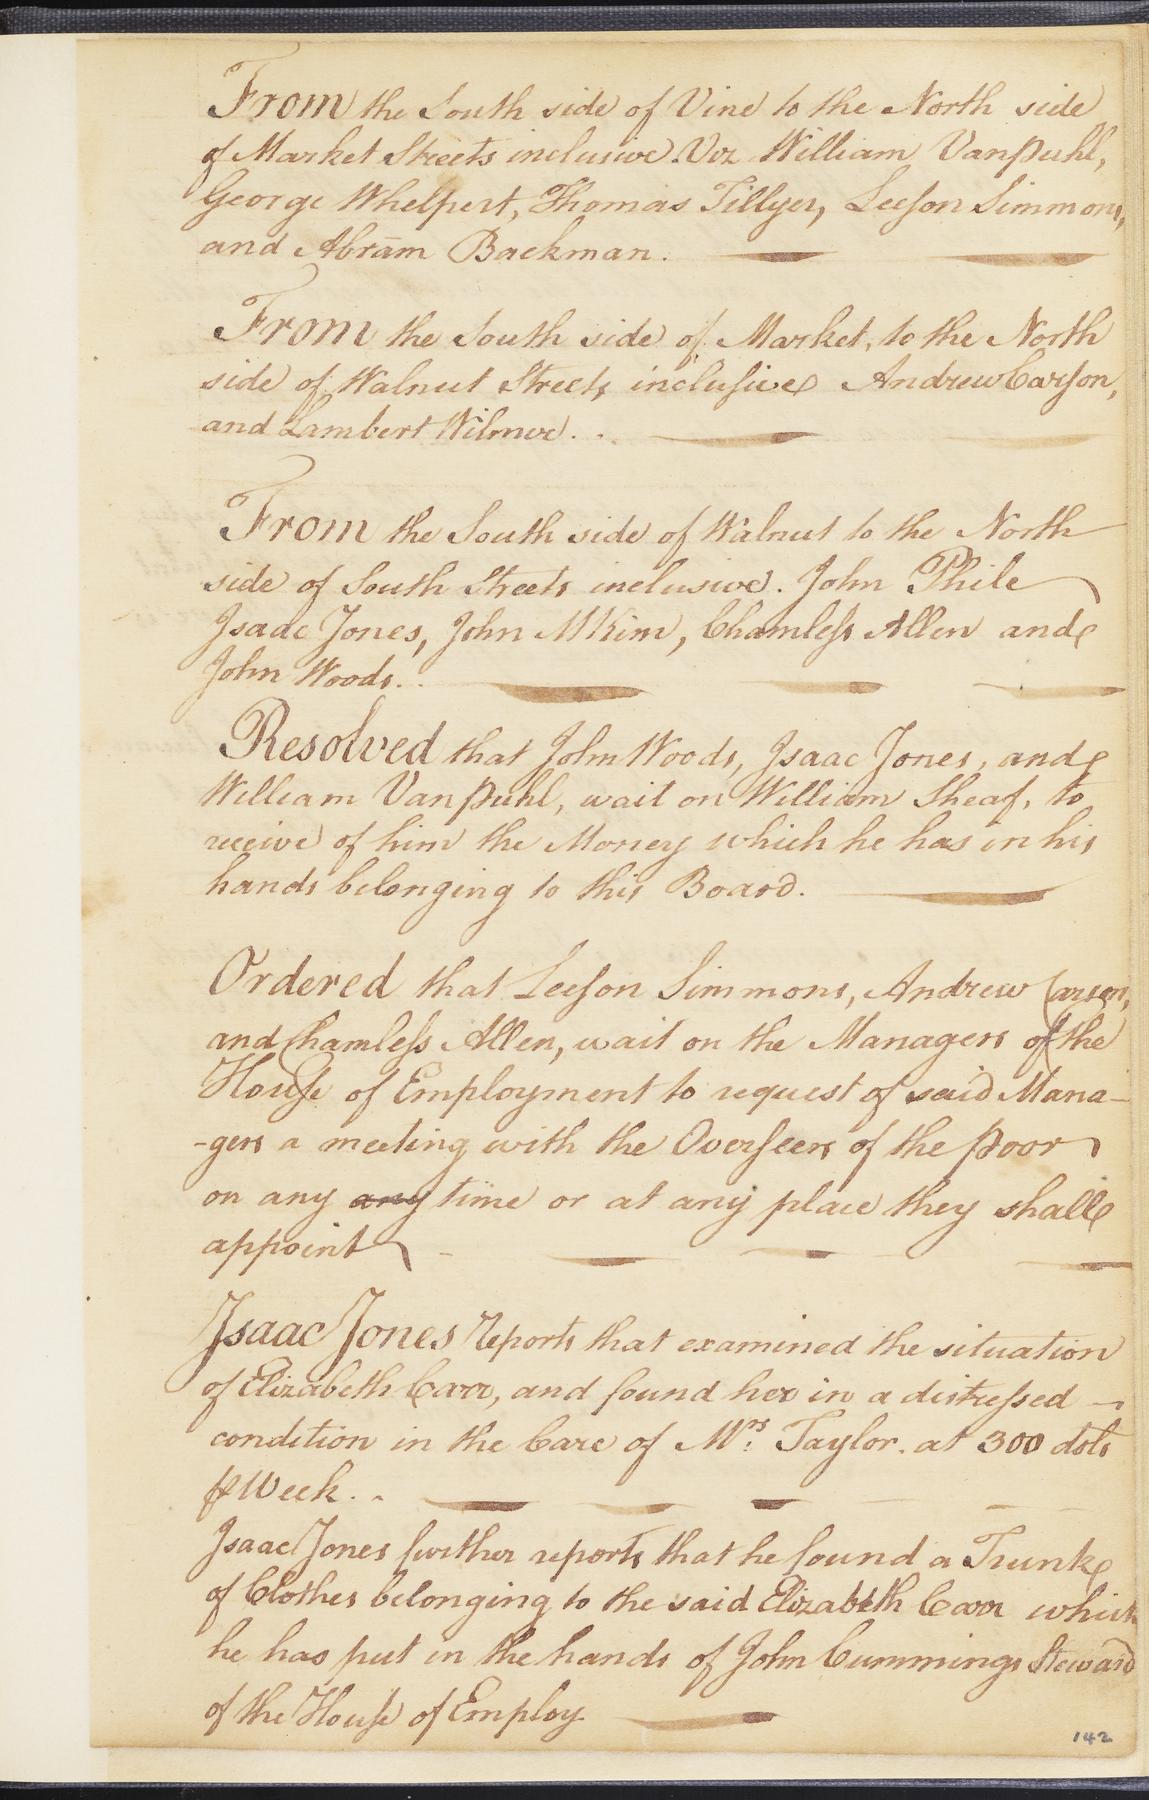 From the South side of Vine to the North side
of Market Streets inclusive. Viz William VanPuhl,
George Whelpert, Thomas Tillyer, Leeson Simmons,
and Abram Backman.
From the South side of Market, to the North
side of Walnut Streets inclusive Andrew Carson,
and Lambert Wilmore.
From the South side of Walnut to the North
side of South Streets inclusive. John Phile
Isaac Jones, John McKim, Chamless Allen and
John Woods.
Resolved that John Woods, Isaac Jones, and
William VanPuhl, wait on William Sheaf, to
receive of him the Money which he has in his
hands belonging to this Board.
Ordered that Leeson Simmons, Andrew Carson,
and Chamless Allen, wait on the Managers of the
House of Employment to request of said Mana-
-gers a meeting with the Overseers of the poor
on any any time or at any place they shall
appoint
Isaac Jones Reports that examined the situation
of Elizabeth Carr, and found her in a distressed
condition in the Care of Mrs. Taylor. at 300 dols
⅌ Week.
Isaac Jones further reports that he found a Trunk
of Clothes belonging to the said Elizabeth Carr which
he has put in the hands of John Cummings Steward
of the House of Employ
142